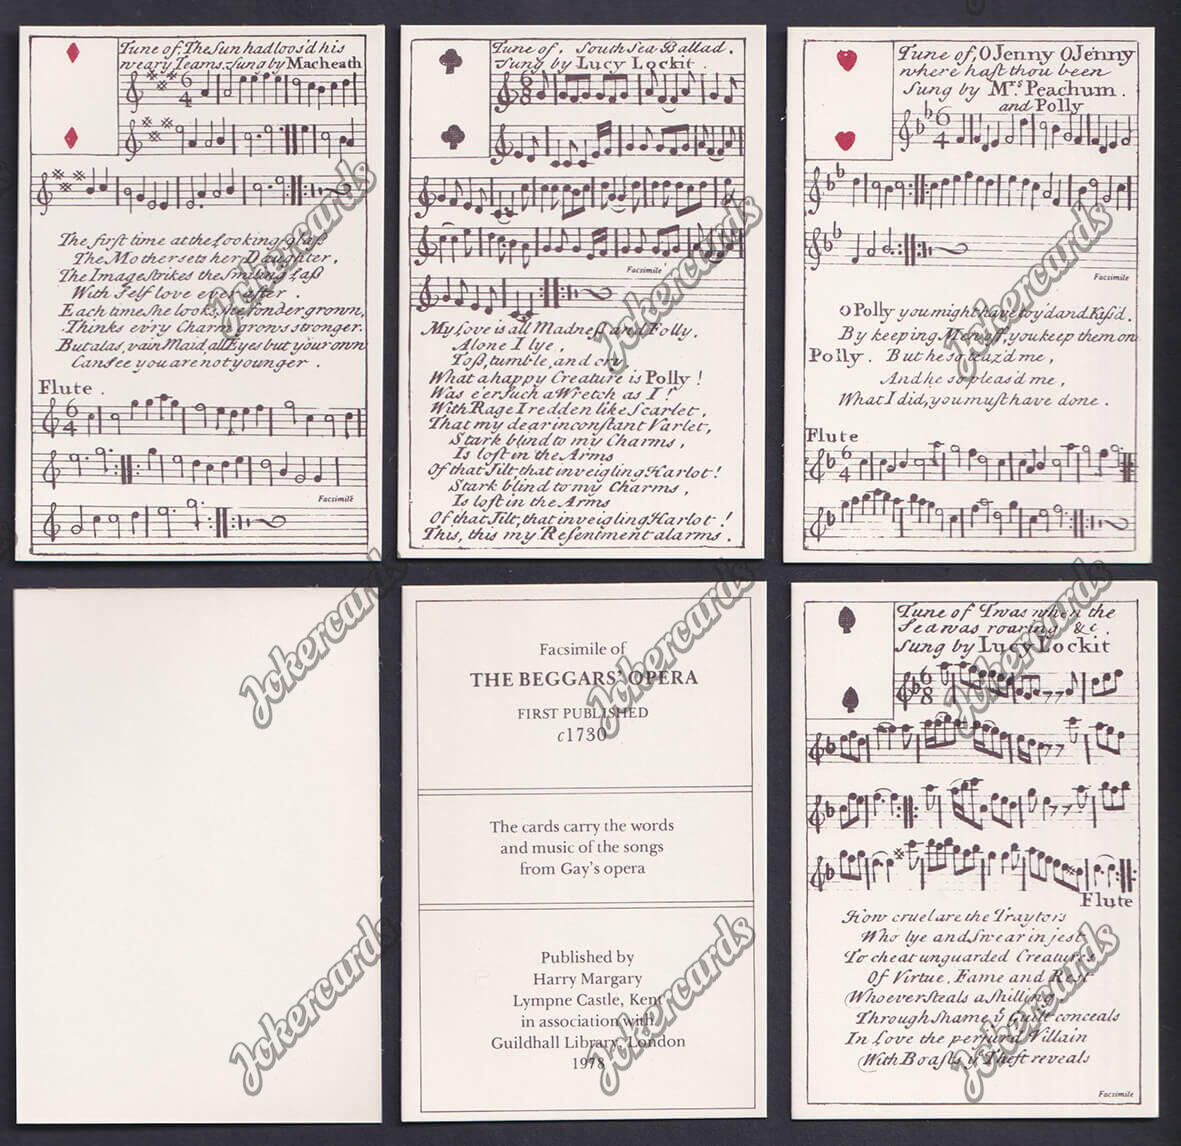 Tune of, The Sun had loos'd his
weary Teams. Sung by Macheath
6
4
The first time at the Looking-glaſs
The Mother sets her Daughter,
The Image ſtrikes the smiling Laſs
With Self love ever after.
Each time she looks, she fonder grown,
Thinks ev'ry Charm grows stronger.
But alas, vain Maid, all Eyes but your own
Can see you are not younger.
Flute.
6
4
Facsimile
Tune of, South Sea Ballad.
Sung by Lucy Lockit.
6
8
Facsimile
My Love is all Madneſs and Folly,
Alone I lye,
Toſs, tumble, and cry
What a happy Creature is Polly!
Was e'er such a Wretch as I!
With Rage I redden like Scarlet,
That my dear inconſtant Varlet,
Stark blind to my Charms,
Is loſt in the Arms
Of that Jilt, that inveigling Harlot!
Stark blind to my Charms,
Is loſt in the Arms
Of that Jilt, that inveigling Harlot!
This, this my Reſentment alarms.
Tune of, O Jenny O Jenny
where haſt thou been
Sung by Mrs. Peachum.
and Polly
6
4
Facsimile
O Polly you might have toy'd and Kiſs'd.
By keeping Men off, you keep them on
Polly. But he so teaz'd me,
And he so pleas'd me,
What I did, you muſt have done.
Flute
6
4
Facsimile of
THE BEGGARS' OPERA
FIRST PUBLISHED
c1730
The cards carry the words
and music of the songs
from Gay's opera
Published by
Harry Margary
Lympne Castle, Kent
in association with
Guildhall Library, London
1978
Tune of Twas when the
Sea was roaring &c.
Sung by Lucy Lockit
6
8
Flute
How cruel are the Traytors
Who lye and Swear in jest
To cheat unguarded Creatures
Of Virtue, Fame and Rest
Whoever Steals a Shilling,
Through Shame ye Guilt conceals
In Love the perjur'd Villain
With Boaſts ye Theft reveals
Facsimile
Jokercards
Jokercards
Jokercards
Jokercards
Jokercards
Jokercards
Jokercards
Jokercards
Jokercards